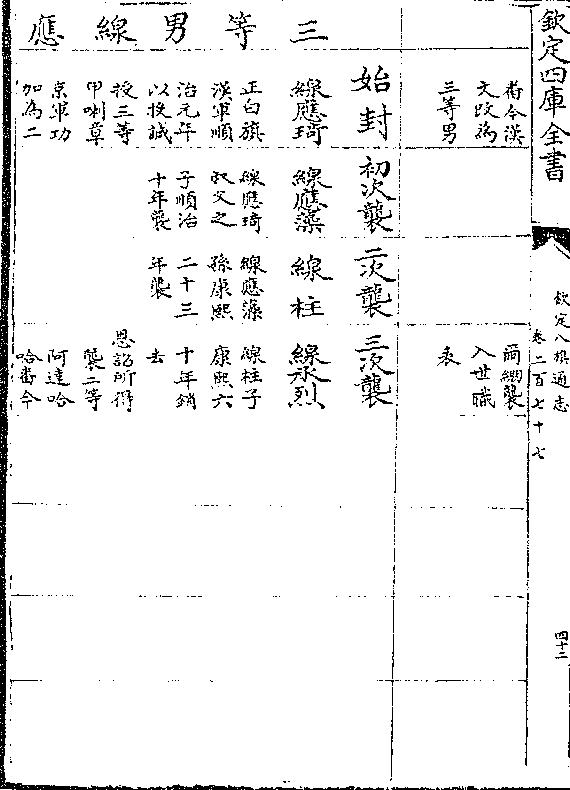 欽定四庫全書
欽定八旗通志
卷二百七十七
四十二
畨今漢
文改為
三等男
爾綳襲
入世職
表
三等男線應
始封
線應琦
正白旗
漢軍順
治元年
以投誠
授三等
甲喇章
京軍功
加為二
初次襲
線應藻
線應琦
叔父之
子順治
十年襲
二次襲
線柱
線應藻
孫康熙
二十三
年襲
三次襲
線永烈
線柱子
康熙六
十年銷
去
恩詔所得
襲二等
阿達哈
哈畨今